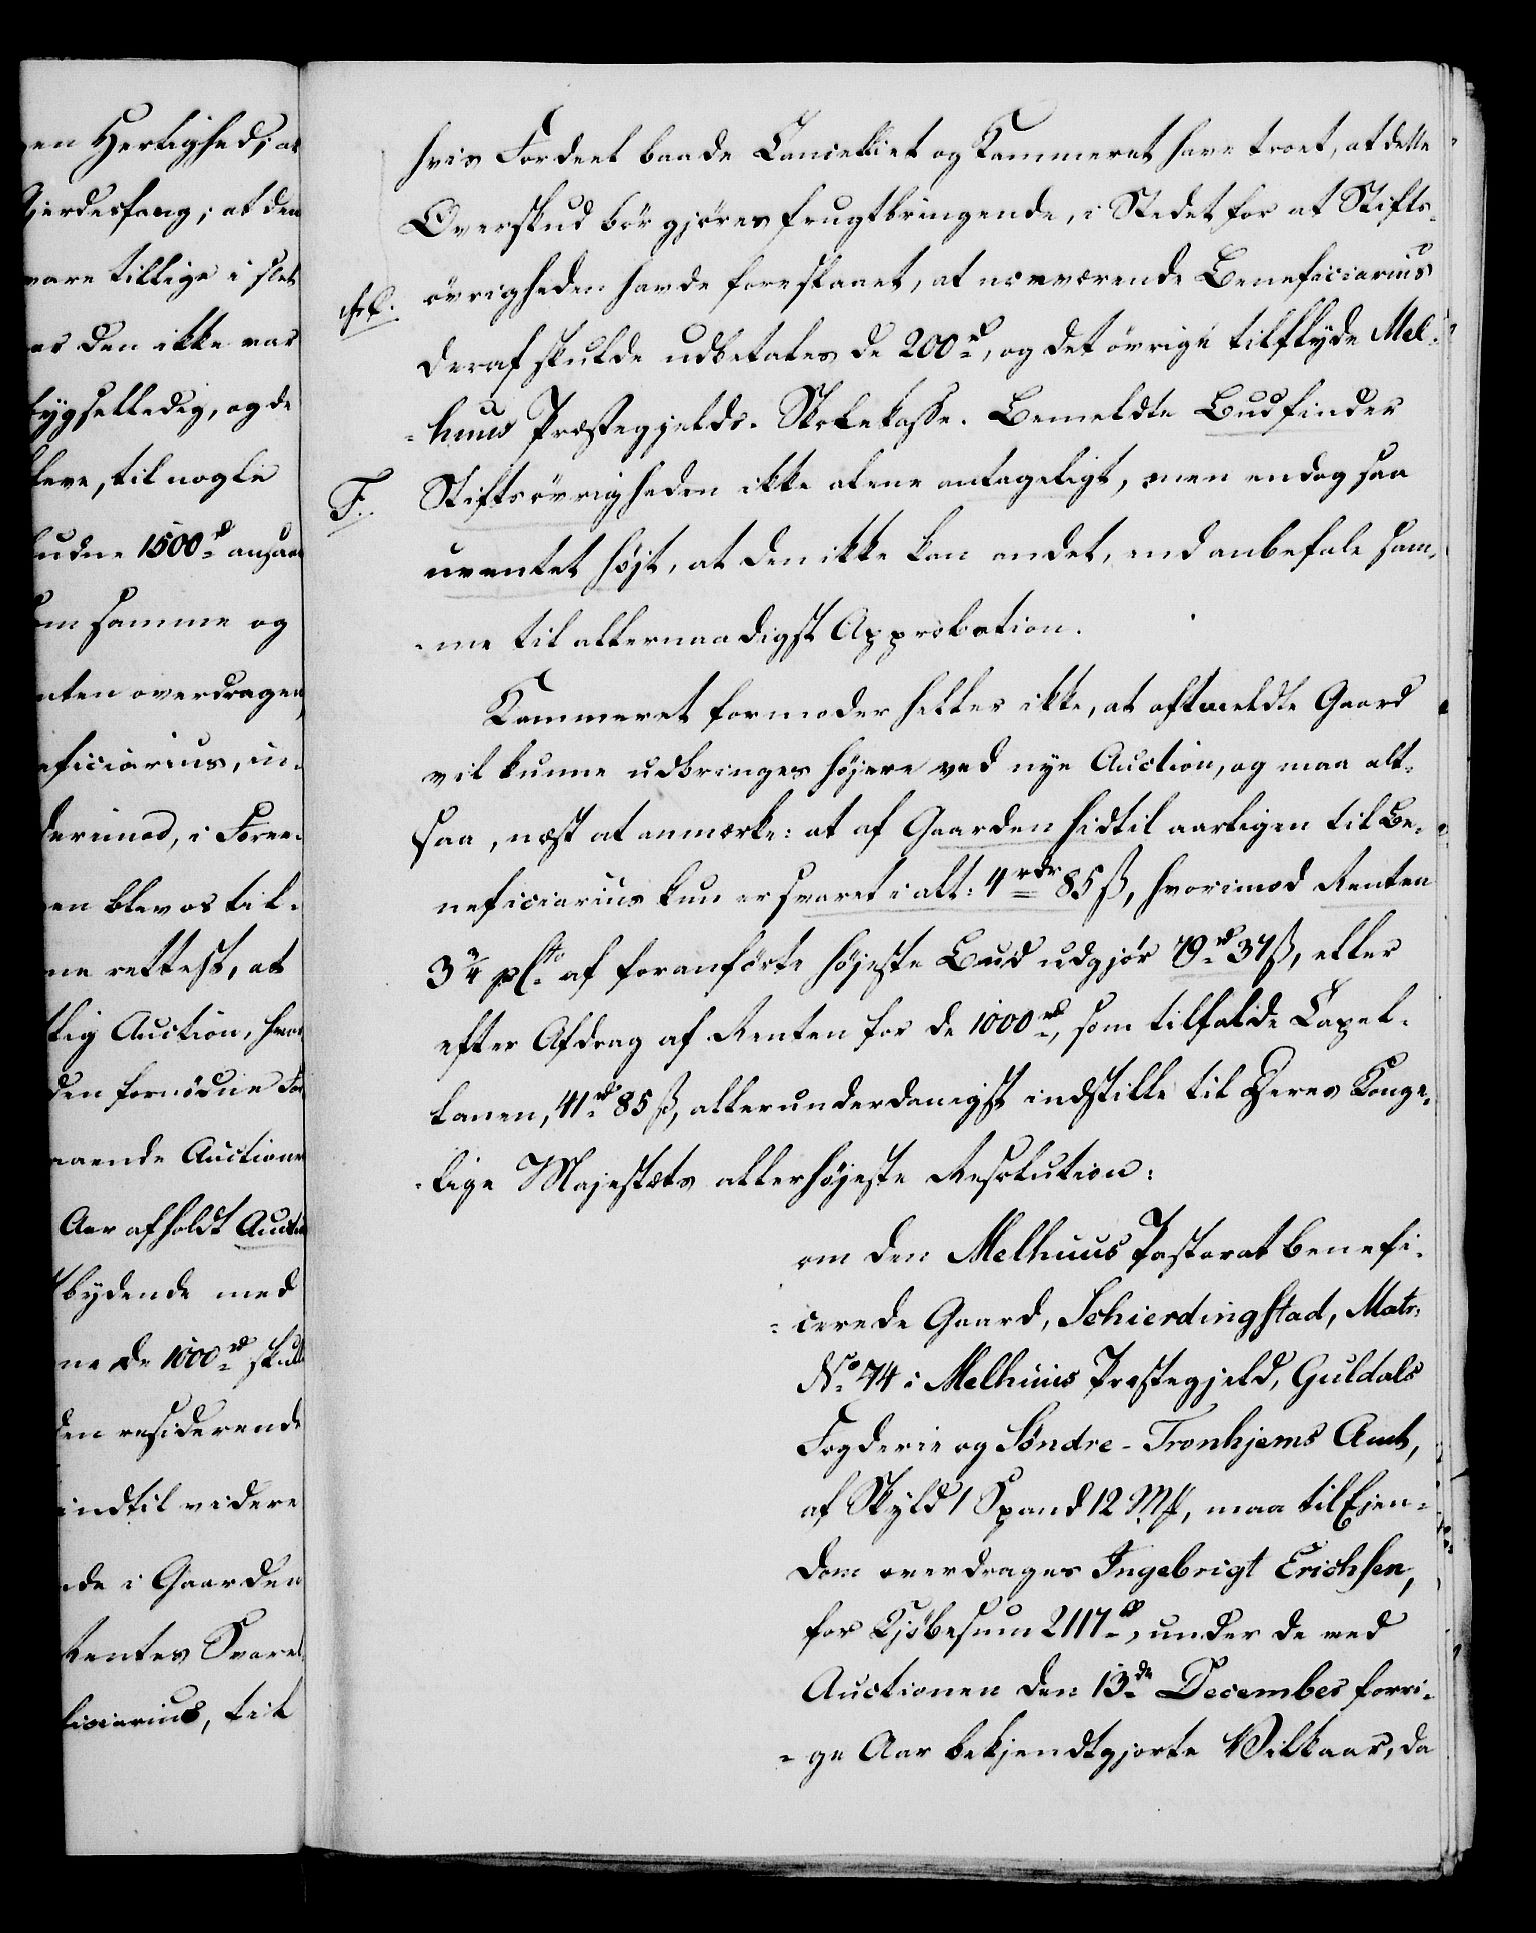 en Herlighed; at
Gierdesfang; at den
være tillige i slet
as den ikke var
bygselledig, og de
leve, til nogle
budne 1500rd ansaae
om samme og
nten overdragen,
eficiarius, in-
derimod, i Foree-
en blev os til-
ne rettest, at
tlig Auction, hvor
den fornödne For
aaende Auctioner
Aar afholdt Auction
tbydende med
ne de 1000rd skulde
den residerende
indtil videre
de i Gaarden
Rentes Svarel
ficiarius, til
hvis Fordeel baade Cancelliet og Kammeret have troet, at dette
Overskud bör gjöres frugtbringende, i Stedet for at Stifts-
övrigheden havde foreslaaet, at nærværende Beneficiarius
deraf skulde udbetales de 200rd, og det övrige tilflyde Mel-
-huus Præstegjelds Skolekasse. Bemeldte Bud finder
F. Stiftsövrigheden ikke alene antageligt, men endog saa
uventet höjt, at den ikke kan andet, end anbefale sam-
-me til allernaadigst Approbation.
Kammeret formoder heller ikke, at oftmeldte Gaard
vil kunne udbringes höjere ved nye Auction, og maa alt-
saa, næst at anmærke: at af Gaarden hidtil aarligen til Be-
neficiarius kun er svaret i alt: 4rdr 85 ß, hvorimod Renten
3 3/4 pCto af foranförte höjeste Bud udgjör 79rd 37 ß, eller
efter Afdrag af Renten for de 1000rd, som tilfalde Capel-
lanen, 41rd 85 ß, allerunderdanigst indstille til Deres Konge-
-lige Majestæts allerhöjeste Resolution:
om den Melhuus Pastorat benefi-
-cerede Gaard, Schierdingstad, Matr:
No 74 i Melhuus Præstegjeld, Guldals
Fogderie og Söndre-Tronhjems Amt,
af Skyld 1 Spand 12 Mk, maa til Ejen-
dom overdrages Ingebrigt Erichsen,
for Kjöbesum 2117rd, under de ved
Auctionen den 13de December forri-
-ge Aar bekjendtgjorte Vilkaar, da